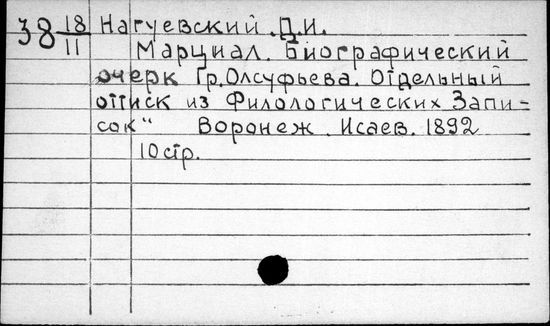 38 18/11 Нагуевский.Д.И.
Марциал. Биографический
очерк Гр. Олсуфьева. Отдельный
оттиск из Филологических Запи-
сок" Воронеж. Исаев. 1892
10 стр.